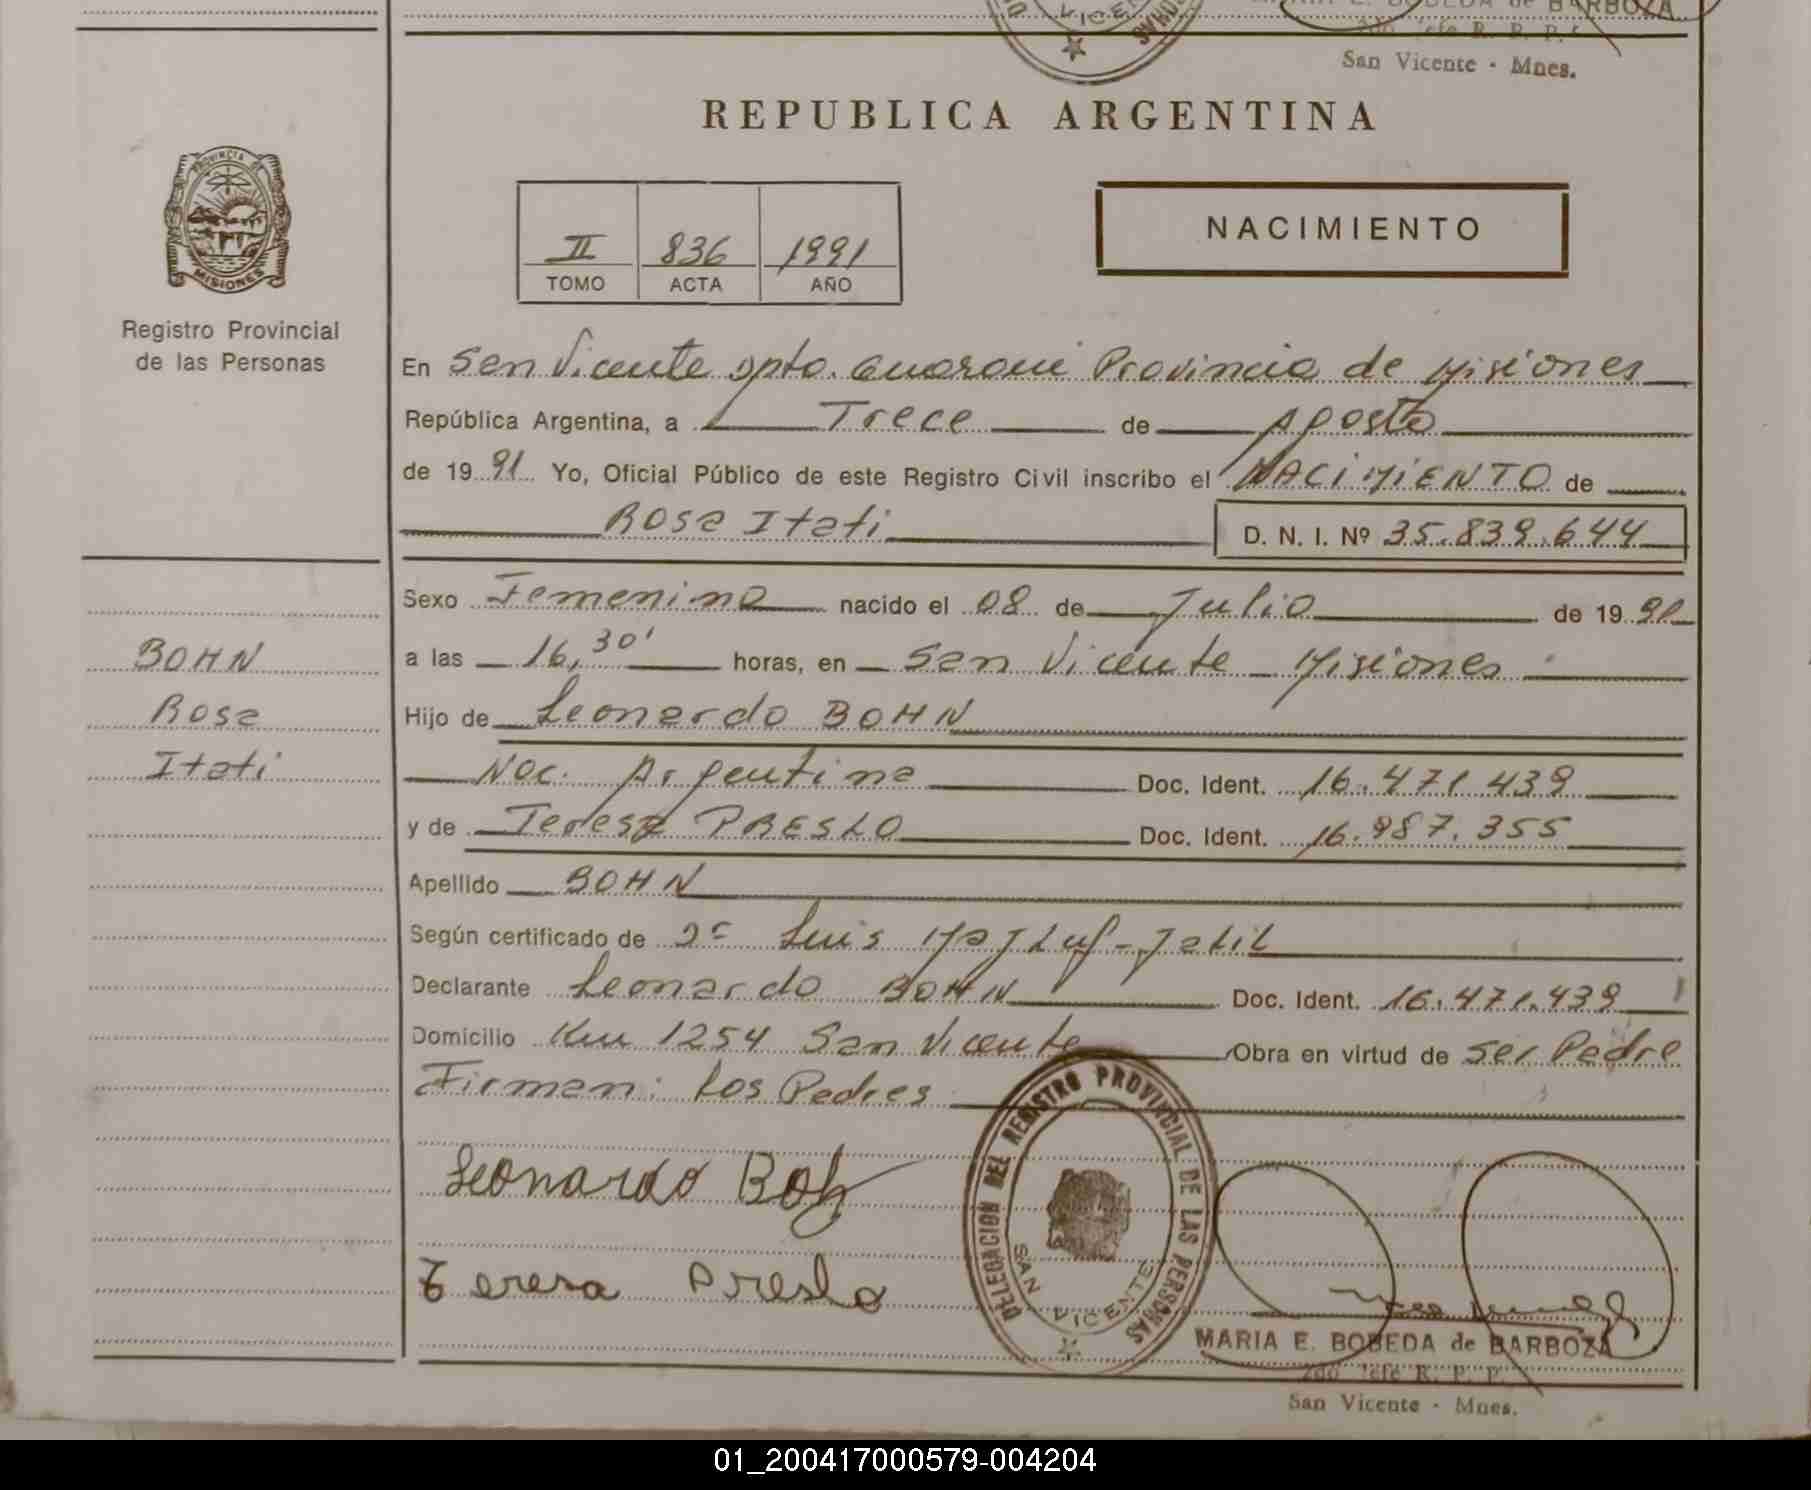 MARIA E. BOBEDA de BARBOZA
2do Jefe R. P. P.
San Vicente - Mnes.
REPUBLICA ARGENTINA
PROVINCIA DE
MISIONES
II 836 1991
TOMO ACTA AÑO
NACIMIENTO
Registro Provincial
de las Personas
En San Vicente Dpto. Guarani Provincia de Misiones
República Argentina, a Trece de Agosto
de 1991 Yo, Oficial Público de este Registro Civil inscribo el NACIMIENTO de
Rosa Itati D. N. I. Nº 35.839.644
Sexo Femenino nacido el 08 de Julio de 1991
BOHN
Rosa
Itati
a las 16,30' horas, en San Vicente Misiones
Hijo de Leonardo BOHN
Nac. Argentina Doc. Ident. 16.471.439
y de Teresa PRESLO Doc. Ident. 16.987.355
Apellido BOHN
Según certificado de Luis
Declarante Leonardo BOHN Doc. Ident. 16.471.439
Domicilio Km 1254 San Vicente Obra en virtud de ser Padre
Firman: Los Padres
Leonardo
Teresa Preslo
DELEGACION DEL REGISTRO PROVINCIAL DE LAS PERSONAS
SAN VICENTE
MARIA E. BOBEDA de BARBOZA
2do Jefe R. P. P.
San Vicente - Mnes.
01_200417000579-004204